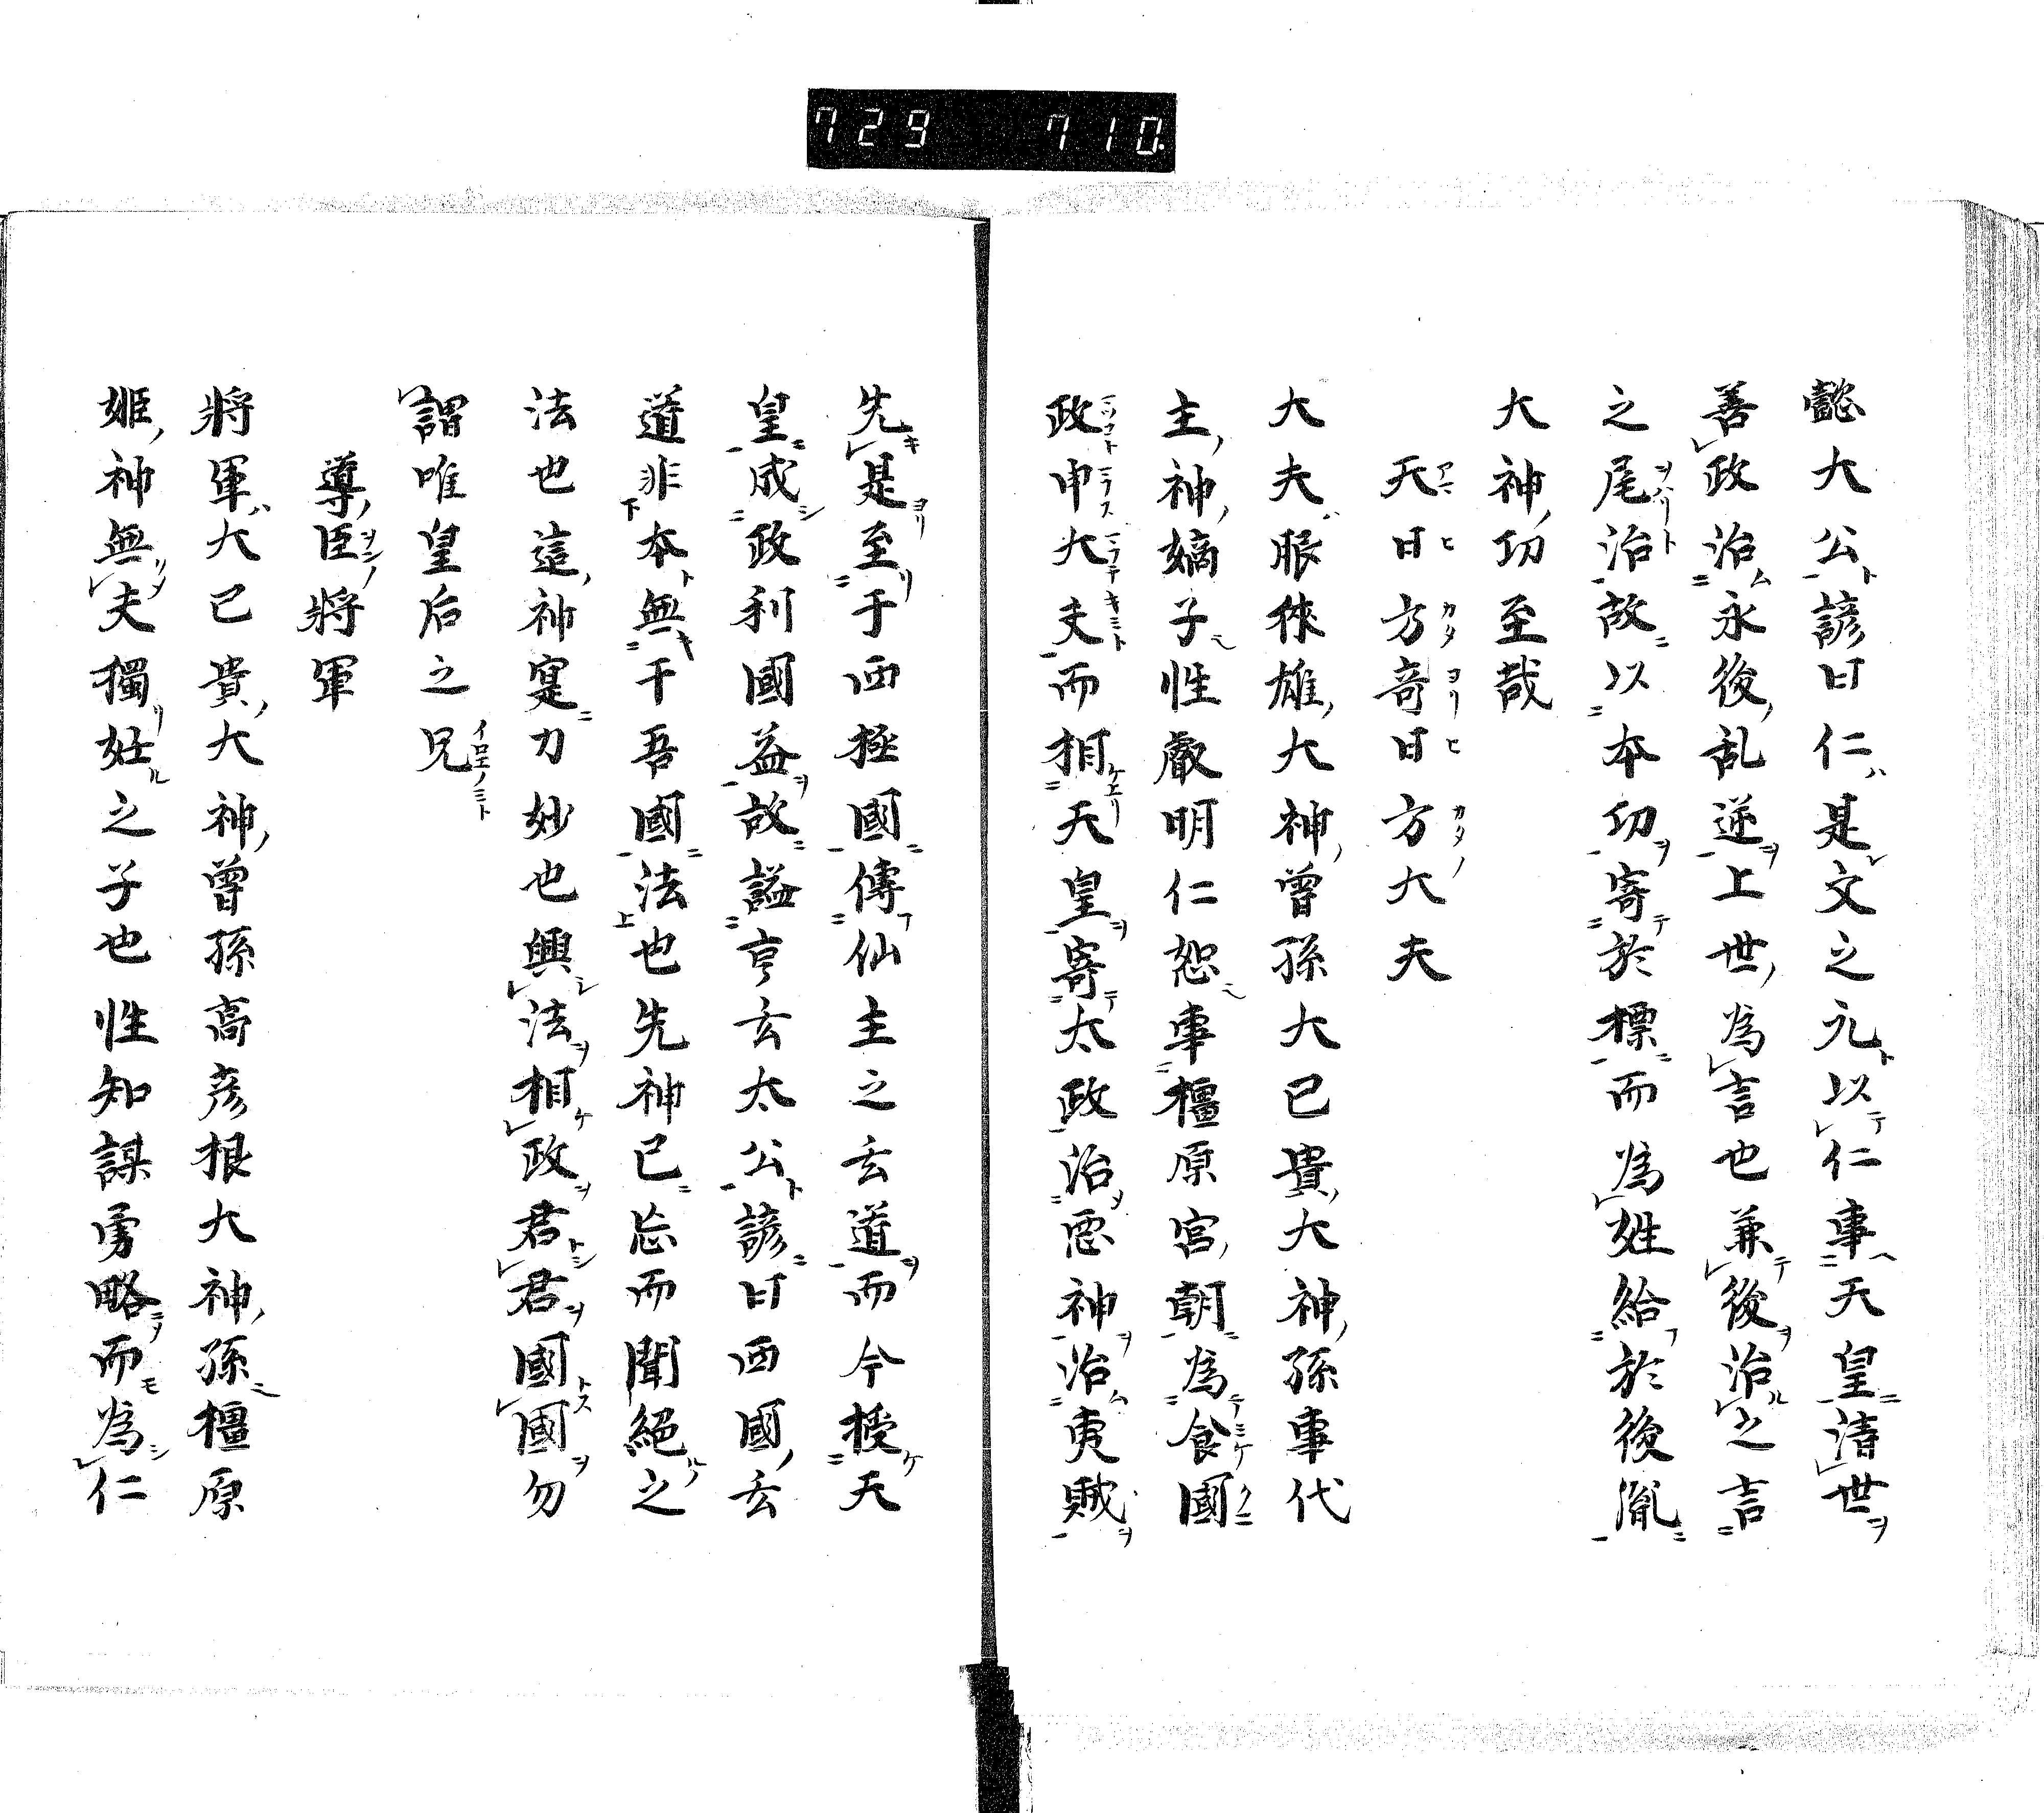 729 710.
懿大公諺曰仁是文之元以仁事天皇清世
善政治永後乱逆上世為言也兼後治之言
之尾治故以本功寄於標而為姓給於後胤
大神功至哉
天日方竒日方大夫
大夫脈徠雄大神曾孫大已貴大神孫事代
主神嫡子性叡明仁恕事橿原宮朝為食國
政申大夫而相天皇寄太政治悪神治夷賊
先是至于西極國傳仙主之玄道而今授天
皇成政利國益故謚亨玄太公諺曰西國玄
道非本無干吾國法也先神已忘而聞絕之
法也這神寔力妙也興法相政君君國國勿
謂唯皇后之兄
導臣將軍
將軍大已貴大神曾孫高彦根大神孫橿原
姬神無夫獨妊之子也性知謀勇略而為仁